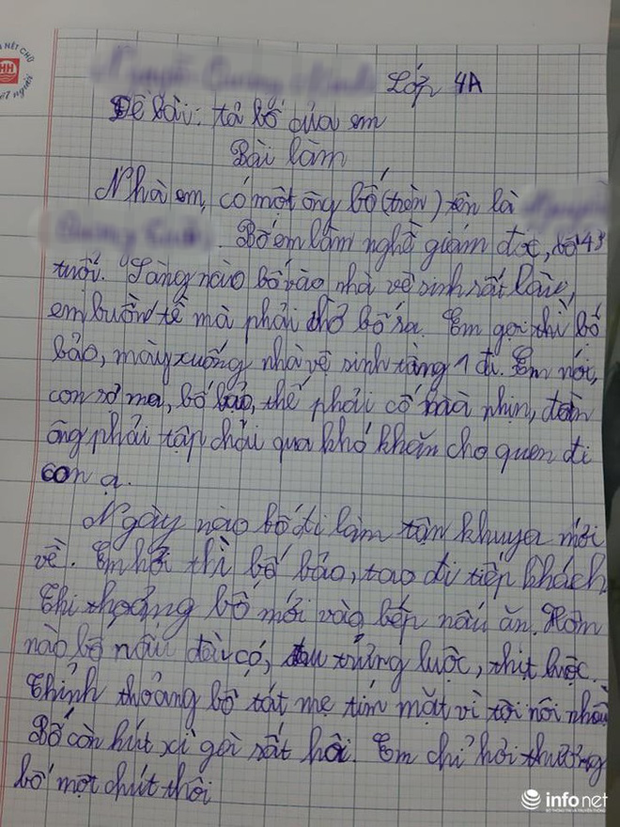 NÉT CHỮ
NẾT NGƯỜI
Lớp 4A
Đề bài: tả bố của em
Bài làm
Nhà em, có một ông bố (trên) tên là
Bố em làm nghề giám đốc, bố 43
tuổi. Sáng nào bố vào nhà vệ sinh rất lâu,
em buồn tè mà phải chờ bố ra. Em gọi thì bố
bảo, mày xuống nhà vệ sinh tầng 1 đi. Em nói,
con sợ ma, bố bảo, thế phải cố mà nhịn, đàn
ông phải tập chải qua khó khăn cho quen đi
con ạ.
Ngày nào bố đi làm tận khuya mới
về. Em hỏi thì bố bảo, tao đi tiếp khách
Thi thoảng bố mới vào bếp nấu ăn. Hôm
nào bố nấu đều có, trứng luộc, thịt luộc.
Thỉnh thoảng bố tát mẹ tím mặt vì tội nói nhiều
Bố còn hút xì gà rất hôi. Em chỉ hơi thương
bố một chút thôi
infonet